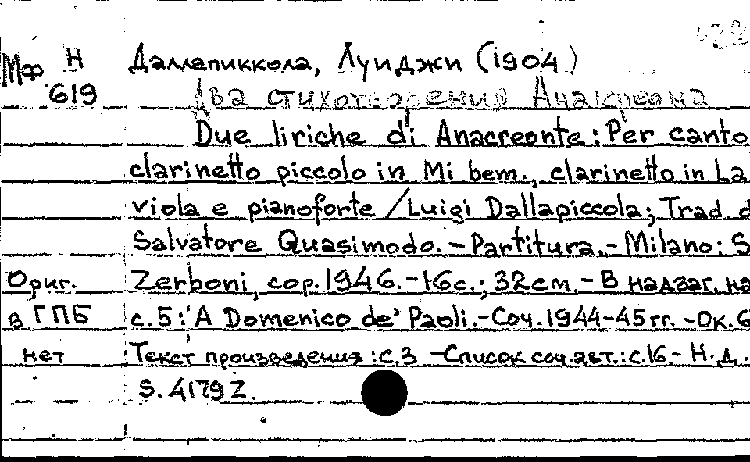 Мф Н 619
Даллапиккола, Луиджи (1904)
Два стихотворения Анакреона
Due liriche di Anacreonte: Per canto
clarinetto piccolo in Mi bem., clarinetto in La
viola e pianoforte / Luigi Dallapiccola; Trad. d
Salvatore Quasimodo. - Partitura. - Milano: S
Ориг. Zerboni, cop. 1946. - 16 с.; 32 см. - В надзаг. на
в ГПБ с. 5: A Domenico de' Paoli. - Соч. 1944-45 гг. - Ок. 6
нет Текст произведения: с. 3 - Список соч. авт.: с. 16. - Н. д.
S. 4179 Z.